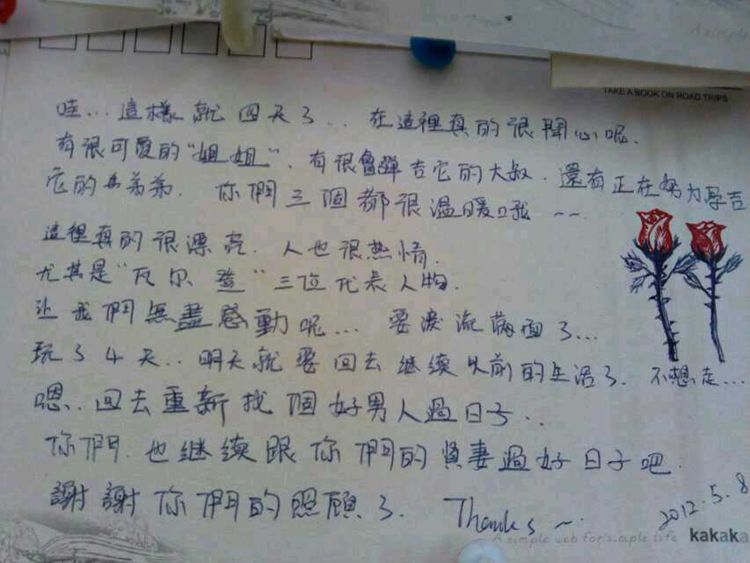 A simple
TAKE A BOOK ON ROAD TRIPS
哇...這樣就四天了...在這裡真的很開心呢.
有很可愛的"姐姐".有很會彈吉它的大叔.還有正在努力學吉
它的弟弟.你們三個都很溫暖哦~~
這裡真的很漂亮.人也很熱情.
尤其是"瓦尔登"三位代表人物.
让我們無盡感動呢...要淚流滿面了...
玩了4天..明天就要回去继续以前的生活了.不想走...
嗯.回去重新找個好男人過日子..
你們.也继续跟你們的妻過好日子吧.
謝謝你們的照顧了. Thanks ~
2012.5.8
A simple web for simple life kakaka